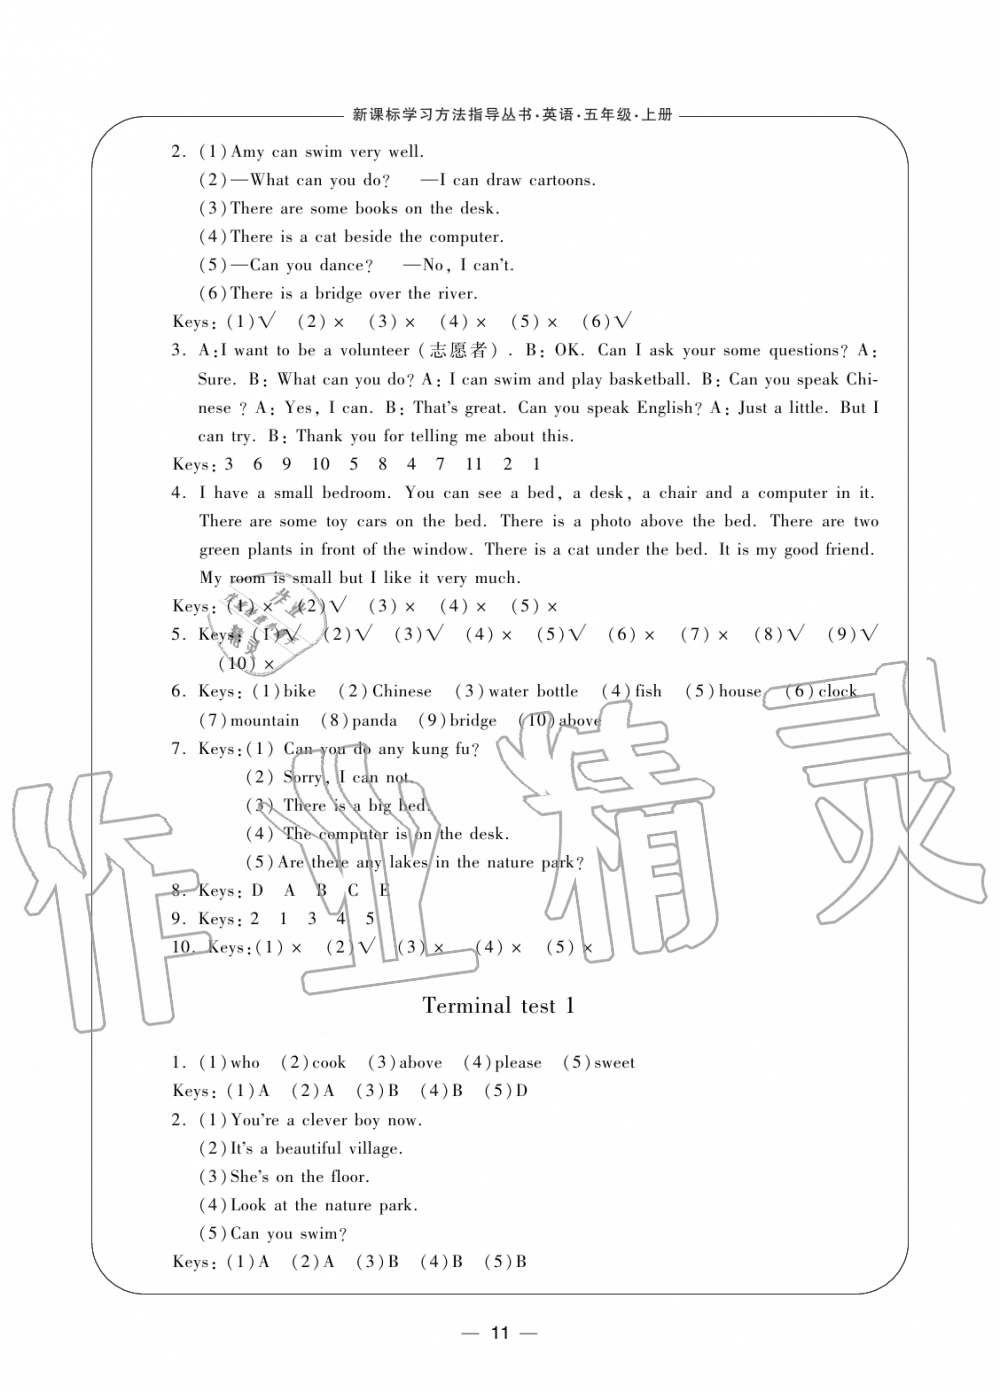 新课标学习方法指导丛书·英语·五年级·上册
2. (1)Amy can swim very well.
(2)—What can you do? —I can draw cartoons.
(3)There are some books on the desk.
(4)There is a cat beside the computer.
(5)—Can you dance? —No, I can't.
(6)There is a bridge over the river.
Keys: (1)√ (2)× (3)× (4)× (5)× (6)√
3. A:I want to be a volunteer(志愿者). B: OK. Can I ask your some questions? A:
Sure. B: What can you do? A: I can swim and play basketball. B: Can you speak Chi-
nese ? A: Yes, I can. B: That's great. Can you speak English? A: Just a little. But I
can try. B: Thank you for telling me about this.
Keys: 3 6 9 10 5 8 4 7 11 2 1
4. I have a small bedroom. You can see a bed, a desk, a chair and a computer in it.
There are some toy cars on the bed. There is a photo above the bed. There are two
green plants in front of the window. There is a cat under the bed. It is my good friend.
My room is small but I like it very much.
Keys: (1)× (2)√ (3)× (4)× (5)×
5. Keys: (1)√ (2)√ (3)√ (4)× (5)√ (6)× (7)× (8)√ (9)√
(10)×
6. Keys: (1)bike (2)Chinese (3)water bottle (4)fish (5)house (6)clock
(7)mountain (8)panda (9)bridge (10)above
7. Keys:(1) Can you do any kung fu?
(2) Sorry, I can not.
(3) There is a big bed.
(4) The computer is on the desk.
(5)Are there any lakes in the nature park?
8. Keys: D A B C E
9. Keys: 2 1 3 4 5
10. Keys:(1)× (2)√ (3)× (4)× (5)×
Terminal test 1
1. (1)who (2)cook (3)above (4)please (5)sweet
Keys: (1)A (2)A (3)B (4)B (5)D
2. (1)You're a clever boy now.
(2)It's a beautiful village.
(3)She's on the floor.
(4)Look at the nature park.
(5)Can you swim?
Keys: (1)A (2)A (3)B (4)B (5)B
— 11 —
作业精灵